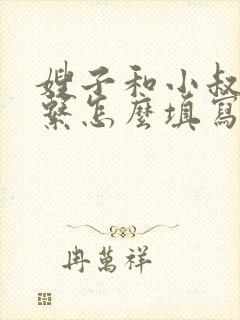 嫂子和小叔
繫怎麼填寫
冉萬祥